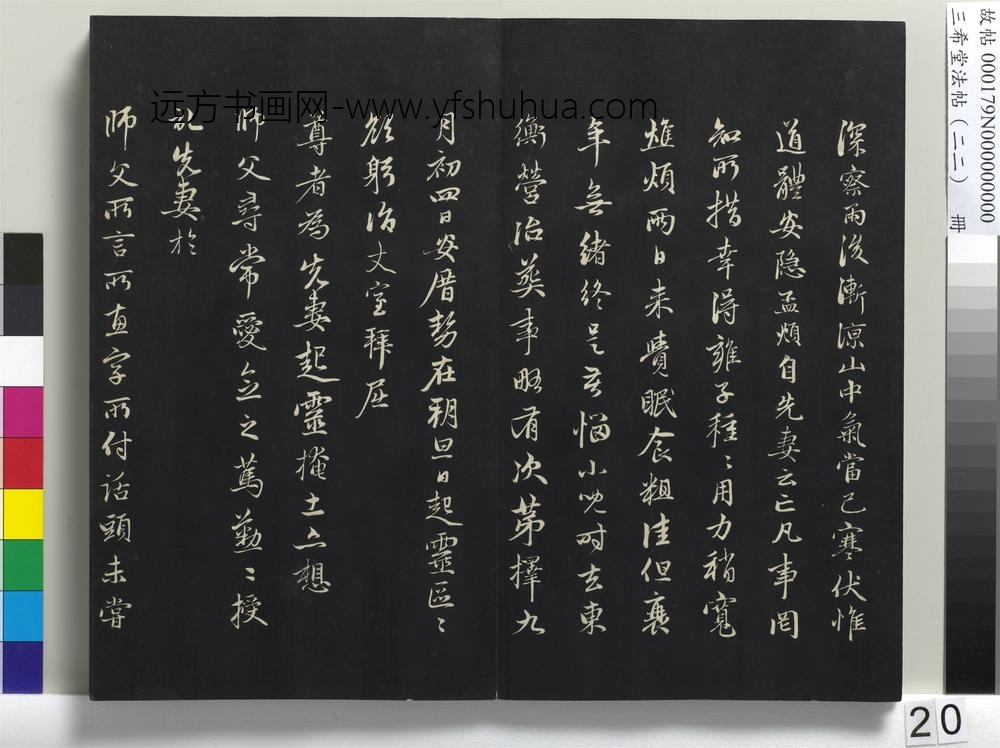 深察雨後漸涼山中氣當已寒伏惟
道體安隱孟頫自先妻云亡凡事罔
知所措幸得雍子種〻用力稍寬
燋煩兩日來覺眠食粗佳但衰
年無緒終是苦惱小兒時去東
衡營治葬事略有次第擇九
月初四日安厝勢在朔旦日起靈區〻
欲躬詣丈室拜屈
尊者為先妻起靈掩土亦想
師父尋常愛念之篤勤〻授
記先妻於
師父所言所直字所付話頭未嘗
远方书画网-www.yfshuhua.com
故帖 000179N000000000
三希堂法帖（二二） 册
20